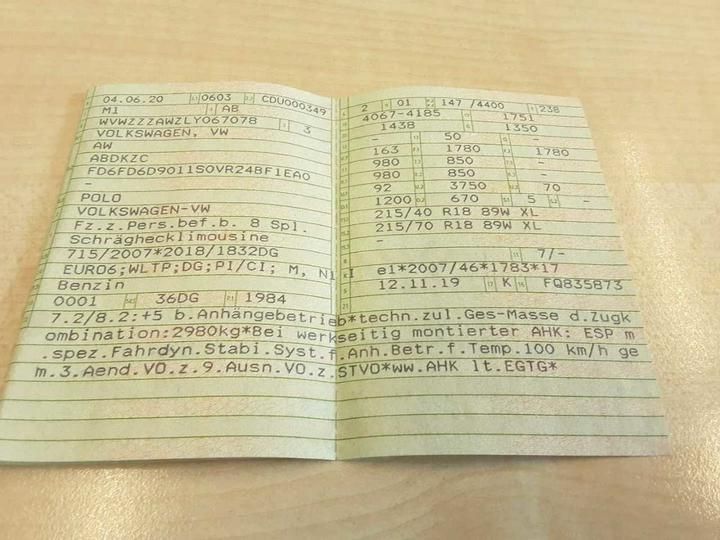 04.06.20 0603 CDU000349
M1 AB
WVWZZZAWZLY067078 3
VOLKSWAGEN, VW
AW
ABDKZC
FD6FD6D9011SOVR24BF1EA0
-
POLO
VOLKSWAGEN-VW
Fz.z.Pers.bef.b. 8 Spl.
Schräghecklimousine
715/2007*2018/1832DG
EURO6;WLTP;DG;PI/CI; M, N1 I
Benzin
0001 36DG 1984
2 01 147 /4400 238
4067-4185 1751
1438 1350
- 50 -
163 1780 1780
980 850 -
980 850 -
92 3750 70
1200 670 5 -
215/40 R18 89W XL
215/70 R18 89W XL
-
-
7/-
e1*2007/46*1783*17
12.11.19 K FQ835873
7.2/8.2:+5 b.Anhängebetrieb*techn.zul.Ges-Masse d.Zugk
ombination:2980kg*Bei werkseitig montierter AHK: ESP m
.spez.Fahrdyn.Stabi.Syst.f.Anh.Betr.f.Temp.100 km/h ge
m.3.Aend.VO.z.9.Ausn.VO.z.STVO*ww.AHK lt.EGTG*